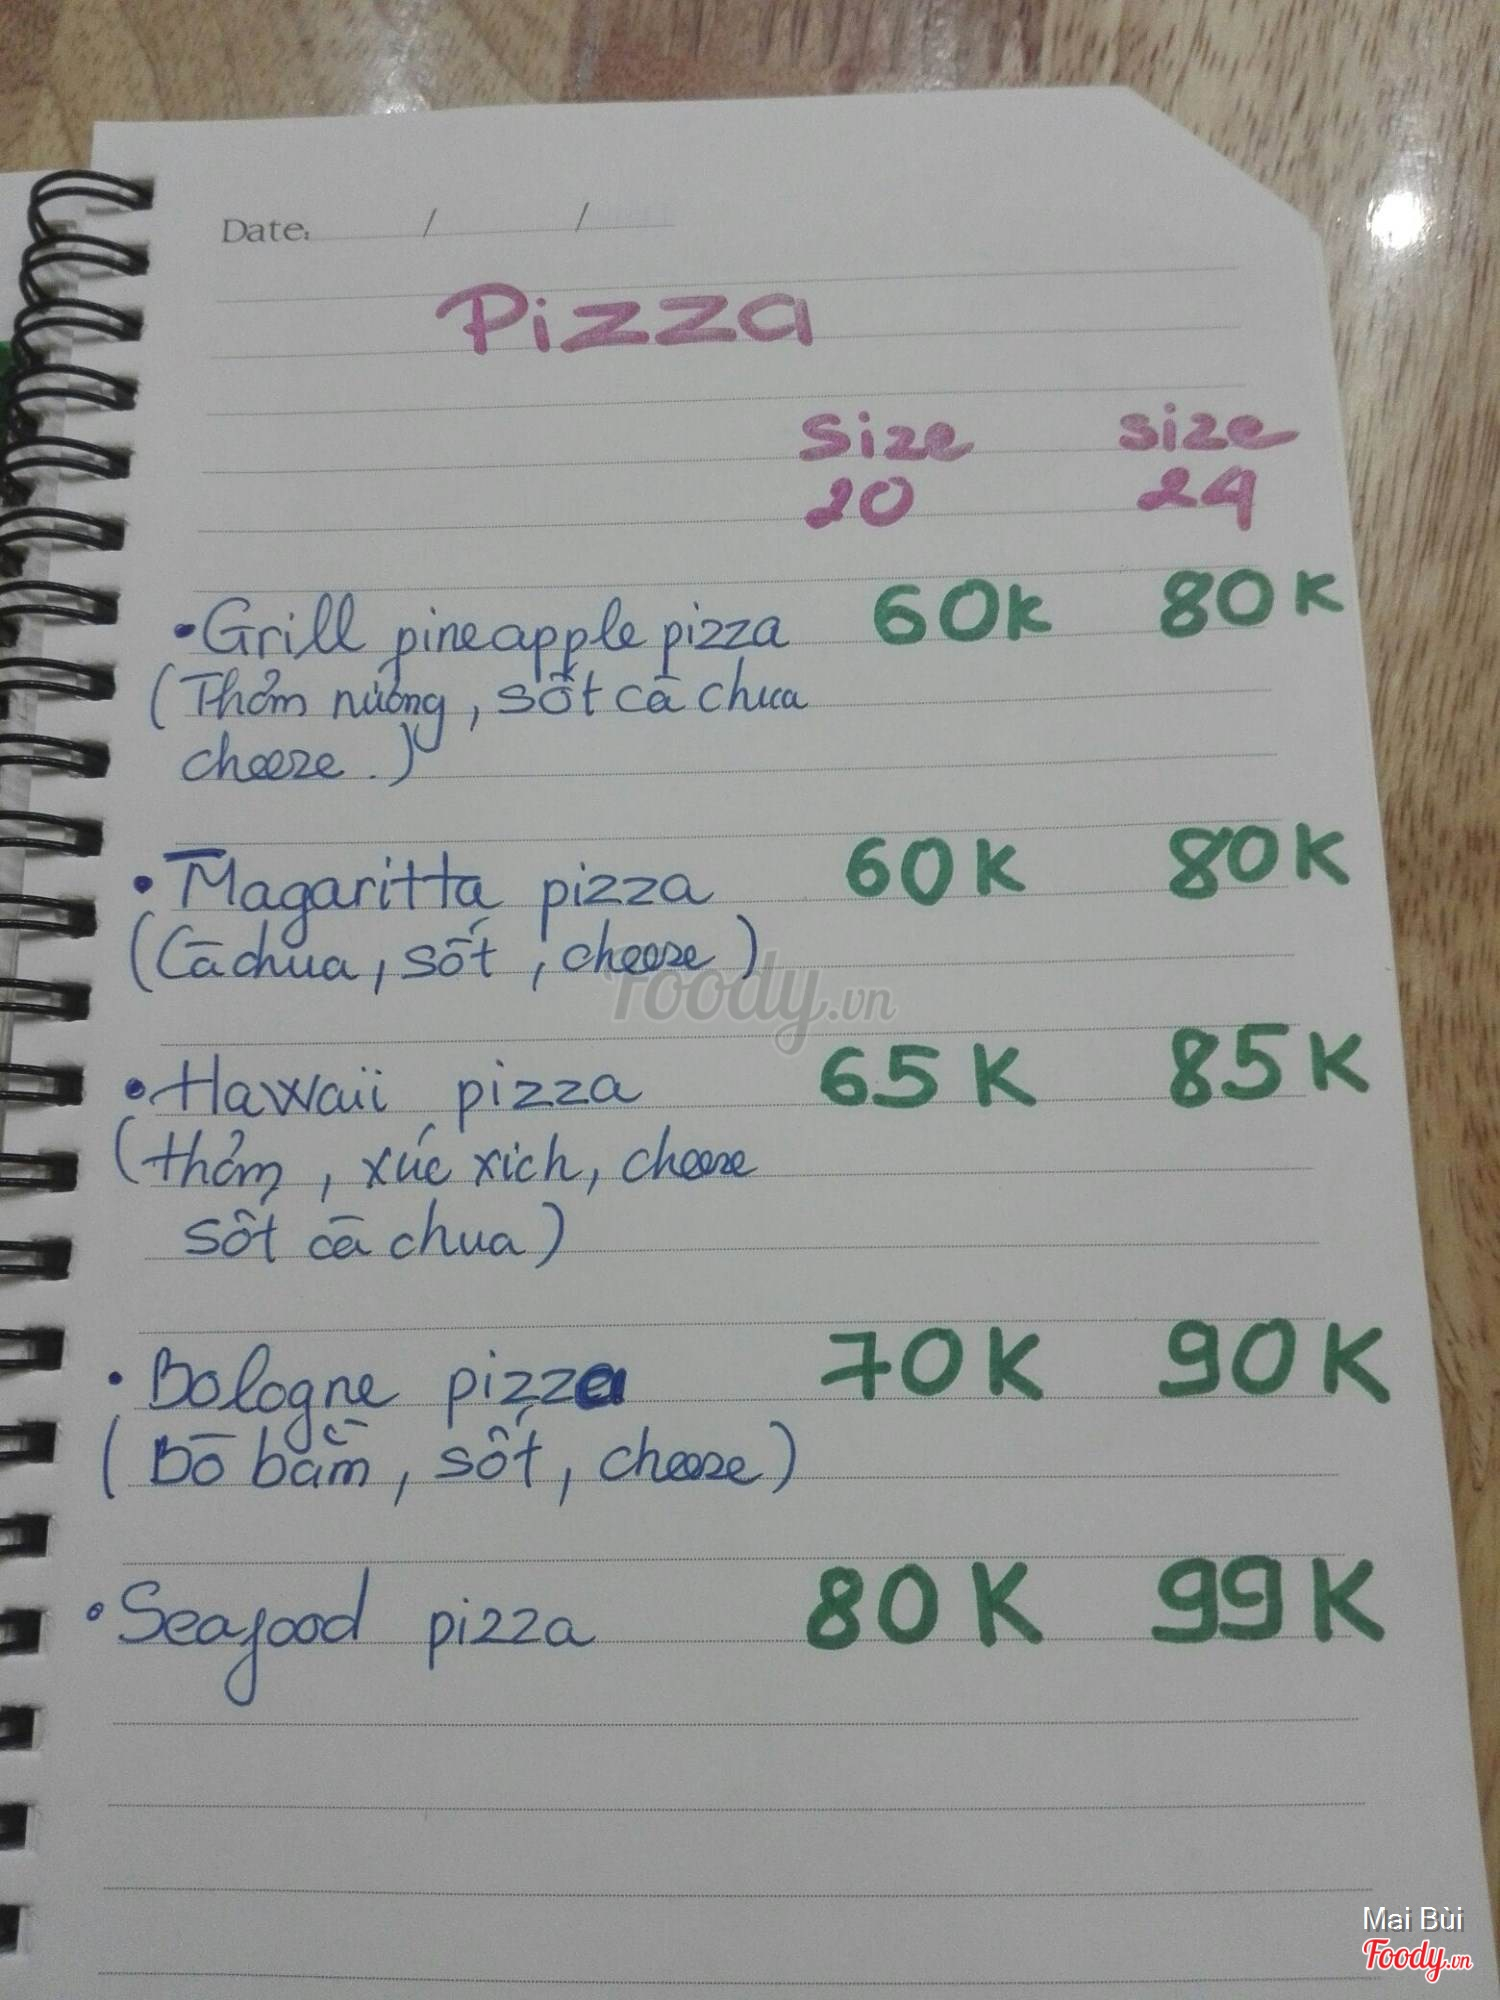 Date: / /
Pizza
Size size
20 24
• Grill pineapple pizza 60k 80k
(Thơm nướng, sốt cà chua
cheeze.)
• Magaritta pizza 60K 80K
(Cà chua, sốt, cheeze)
• Hawaii pizza 65K 85K
(thơm, xúc xích, cheeze
sốt cà chua)
• Bologne pizza 70K 90K
(Bò bằm, sốt, cheeze)
• Seafood pizza 80K 99K
Foody.vn
Mai Bùi
Foody.vn